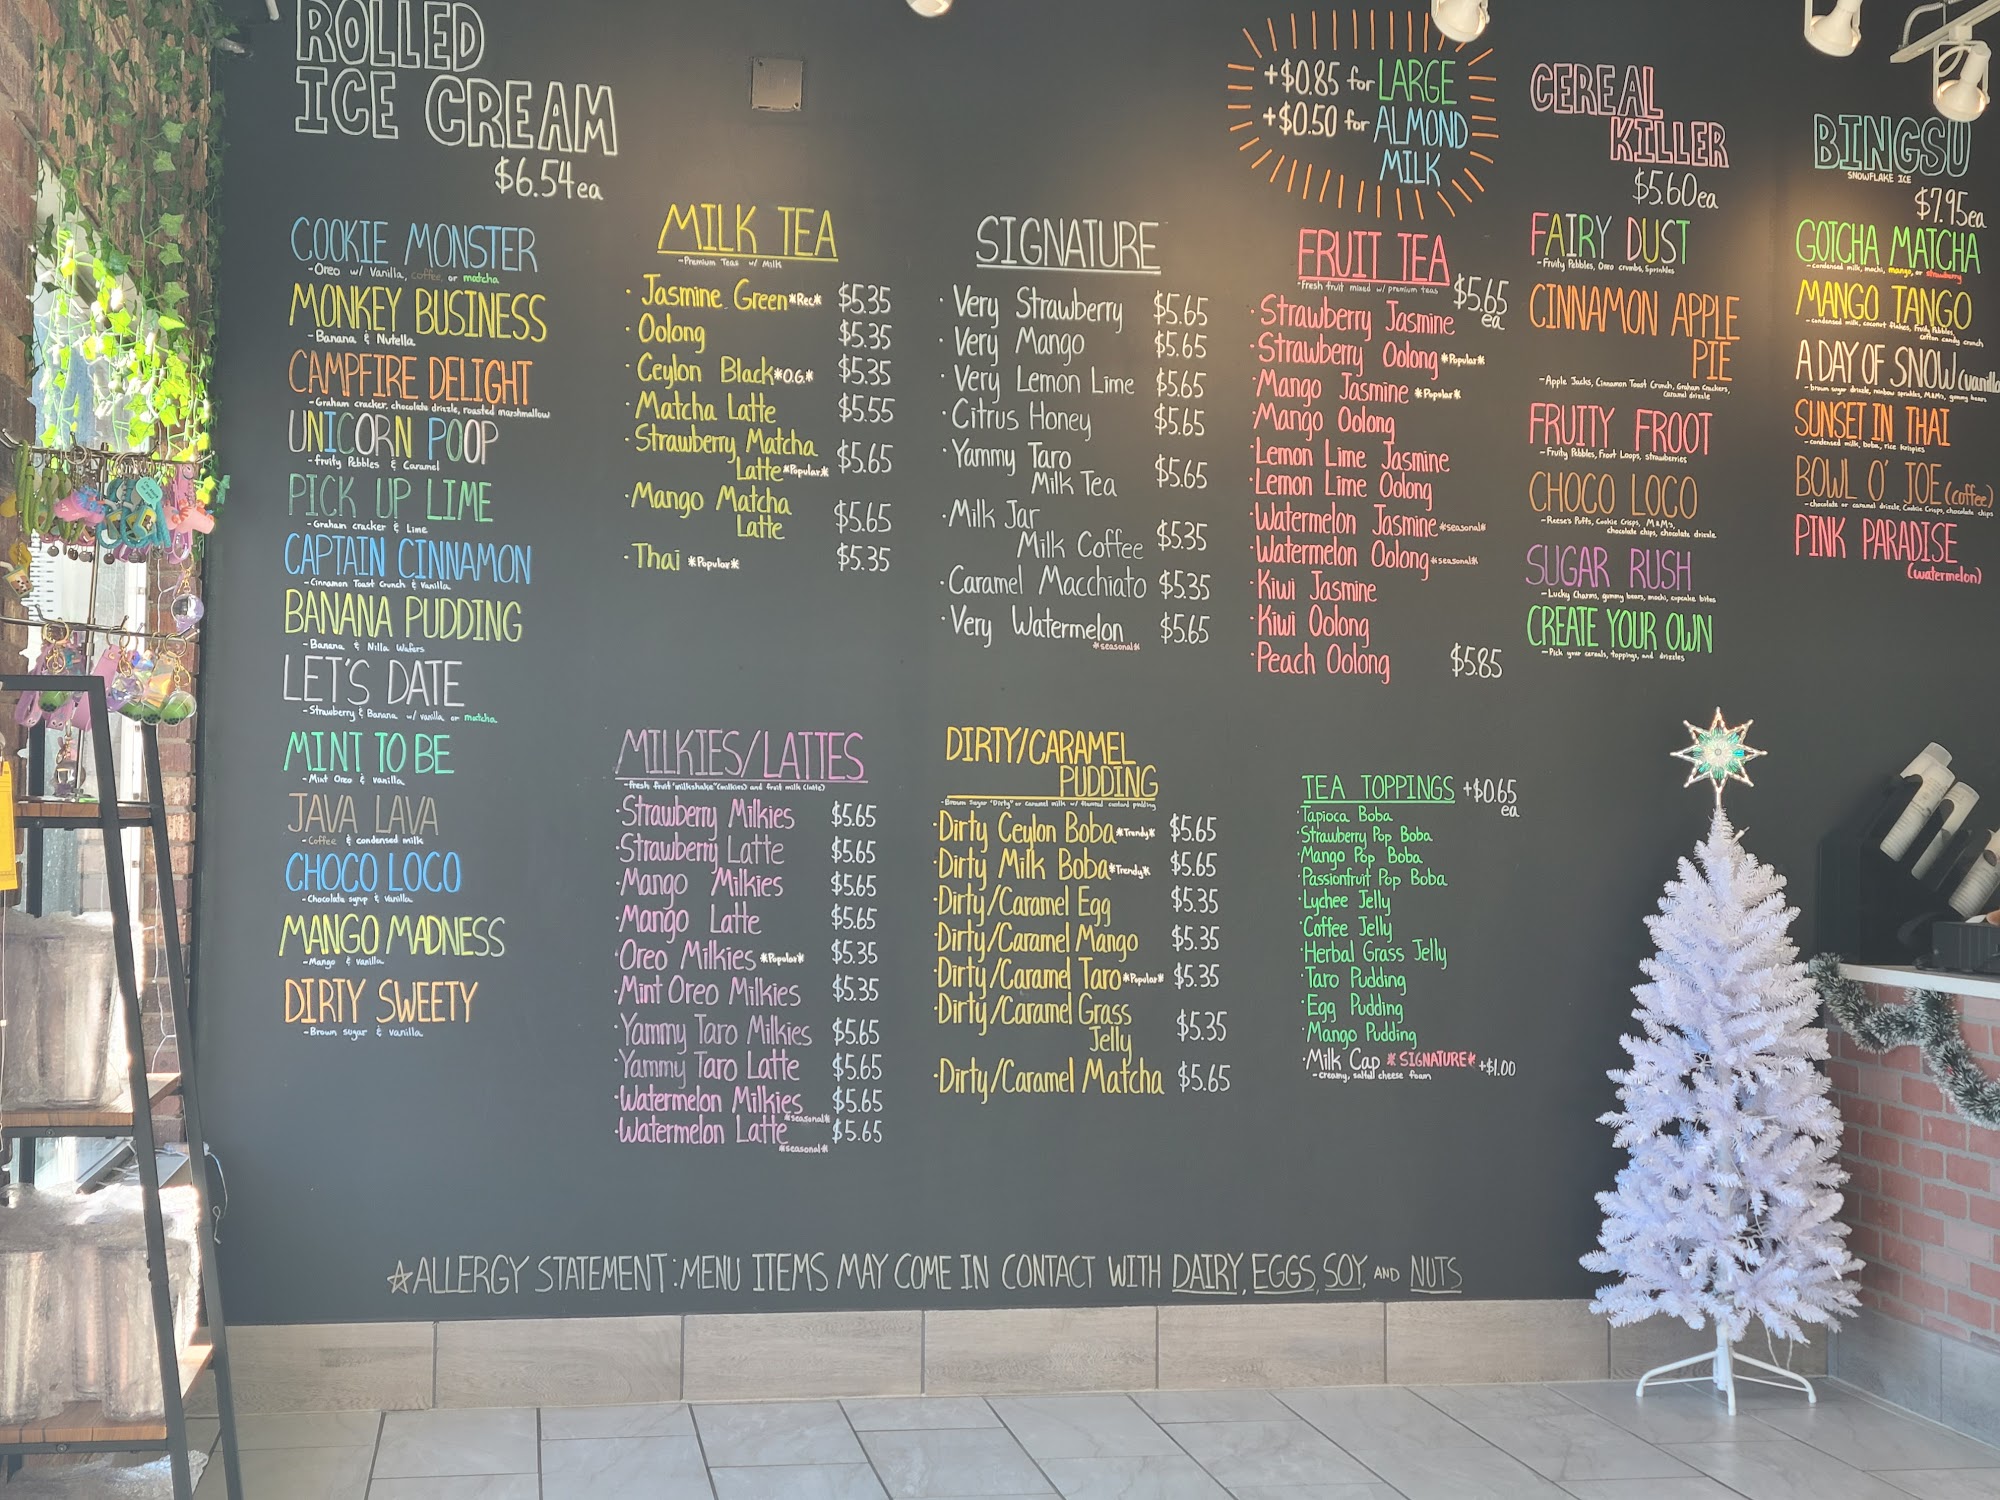 ROLLED
ICE CREAM
$6.54 ea
COOKIE MONSTER
-Oreo w/ Vanilla, coffee, or matcha
MONKEY BUSINESS
-Banana & Nutella
CAMPFIRE DELIGHT
-Graham cracker, chocolate drizzle, roasted marshmallow
UNICORN POOP
-Fruity Pebbles & Caramel
PICK UP LIME
-Graham cracker & Lime
CAPTAIN CINNAMON
-Cinnamon Toast Crunch & Vanilla
BANANA PUDDING
-Banana & Nilla Wafers
LET'S DATE
-Strawberry & Banana w/ vanilla or matcha
MINT TO BE
-Mint Oreo & vanilla
JAVA LAVA
-Coffee & condensed milk
CHOCO LOCO
-Chocolate syrup & Vanilla
MANGO MADNESS
-Mango & vanilla
DIRTY SWEETY
-Brown sugar & vanilla
MILK TEA
-Premium Teas w/ Milk
·Jasmine Green *Rec* $5.35
·Oolong $5.35
·Ceylon Black *O.G.* $5.35
·Matcha Latte $5.55
·Strawberry Matcha
Latte *Popular* $5.65
·Mango Matcha
Latte $5.65
·Thai *Popular* $5.35
MILKIES/LATTES
-fresh fruit "milkshake" (milkies) and fruit milk (latte)
·Strawberry Milkies $5.65
·Strawberry Latte $5.65
·Mango Milkies $5.65
·Mango Latte $5.65
·Oreo Milkies *Popular* $5.35
·Mint Oreo Milkies $5.35
·Yammy Taro Milkies $5.65
·Yammy Taro Latte $5.65
·Watermelon Milkies $5.65
*seasonal*
·Watermelon Latte $5.65
*seasonal*
SIGNATURE
·Very Strawberry $5.65
·Very Mango $5.65
·Very Lemon Lime $5.65
·Citrus Honey $5.65
·Yammy Taro
Milk Tea $5.65
·Milk Jar
Milk Coffee $5.35
·Caramel Macchiato $5.35
·Very Watermelon $5.65
*seasonal*
DIRTY/CARAMEL
PUDDING
-Brown Sugar "Dirty" or caramel milk w/ flamed custard pudding
·Dirty Ceylon Boba *Trendy* $5.65
·Dirty Milk Boba *Trendy* $5.65
·Dirty/Caramel Egg $5.35
·Dirty/Caramel Mango $5.35
·Dirty/Caramel Taro *Popular* $5.35
·Dirty/Caramel Grass
Jelly $5.35
·Dirty/Caramel Matcha $5.65
+$0.85 for LARGE
+$0.50 for ALMOND
MILK
FRUIT TEA
-Fresh fruit mixed w/ premium teas
$5.65
ea
·Strawberry Jasmine
·Strawberry Oolong *Popular*
·Mango Jasmine *Popular*
·Mango Oolong
·Lemon Lime Jasmine
·Lemon Lime Oolong
·Watermelon Jasmine *seasonal*
·Watermelon Oolong *seasonal*
·Kiwi Jasmine
·Kiwi Oolong
·Peach Oolong $5.85
TEA TOPPINGS +$0.65
ea
·Tapioca Boba
·Strawberry Pop Boba
·Mango Pop Boba
·Passionfruit Pop Boba
·Lychee Jelly
·Coffee Jelly
·Herbal Grass Jelly
·Taro Pudding
·Egg Pudding
·Mango Pudding
·Milk Cap *SIGNATURE* +$1.00
-creamy, salted cheese foam
CEREAL
KILLER
$5.60 ea
FAIRY DUST
-Fruity Pebbles, Oreo crumbs, Sprinkles
CINNAMON APPLE
PIE
-Apple Jacks, Cinnamon Toast Crunch, Graham Crackers,
Caramel drizzle
FRUITY FROOT
-Fruity Pebbles, Froot Loops, strawberries
CHOCO LOCO
-Reese's Puffs, Cookie Crisps, M&M's,
chocolate chips, chocolate drizzle
SUGAR RUSH
-Lucky Charms, gummy bears, mochi, cupcake bites
CREATE YOUR OWN
-Pick your cereals, toppings, and drizzles
BINGSU
SNOWFLAKE ICE
$7.95 ea
GOTCHA MATCHA
-condensed milk, mochi, mango, or strawberry
MANGO TANGO
-condensed milk, coconut flakes, Fruity Pebbles,
cotton candy crunch
A DAY OF SNOW (vanilla
-brown sugar drizzle, rainbow sprinkles, M&Ms, gummy bears
SUNSET IN THAI
-condensed milk, boba, rice krispies
BOWL O' JOE (coffee)
-chocolate or caramel drizzle, Cookie Crisps, chocolate chips
PINK PARADISE
(watermelon)
☆ALLERGY STATEMENT: MENU ITEMS MAY COME IN CONTACT WITH DAIRY, EGGS, SOY, AND NUTS